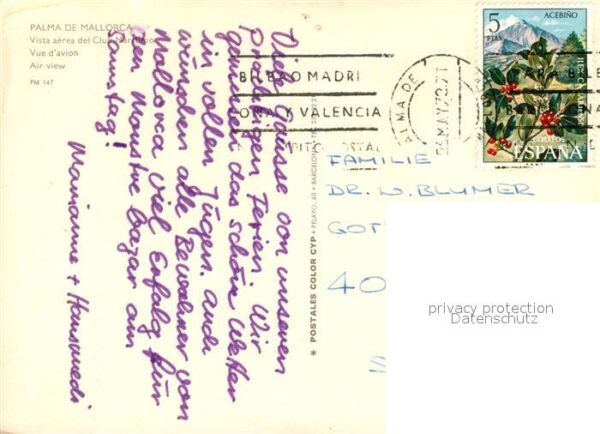 PALMA DE MALLORCA
Vista aérea del Club Náutico
Vue d'avion
Air view
PM 147
Viele Grüsse von unseren
prächtigen Ferien. Wir
geniessen das schöne Wetter
in vollen Zügen. Auch
wünschen alle Bewohner von
Mallorca viel Erfolg für
den Monstre bazar am
Samstag!
Marianne + Hansruedi
* POSTALES COLOR CYP • PELAYO, 40 • BARCELONA
BILBAO MADRI
ONA Y VALENCIA
POSTAL
ALMA DE
MAY 73
5
PTAS
ACEBIÑO
CORREOS
ESPAÑA
FAMILIE
DR. W. BLUMER
GOT
40
S
privacy protection
Datenschutz